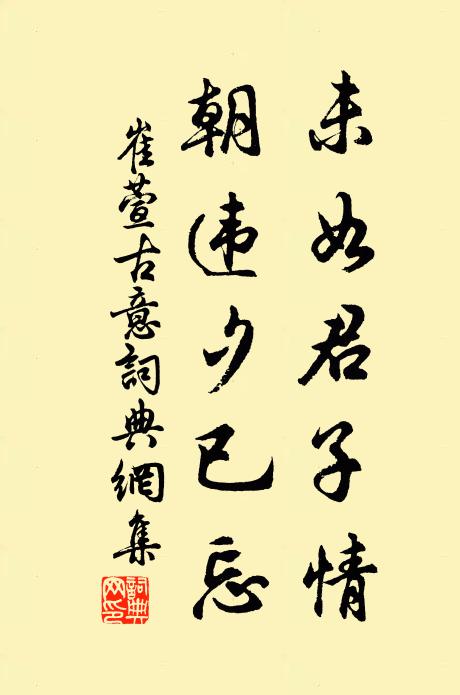 未如君子情
朝违夕已忘
崔萱古意詞典網集
詞典網印